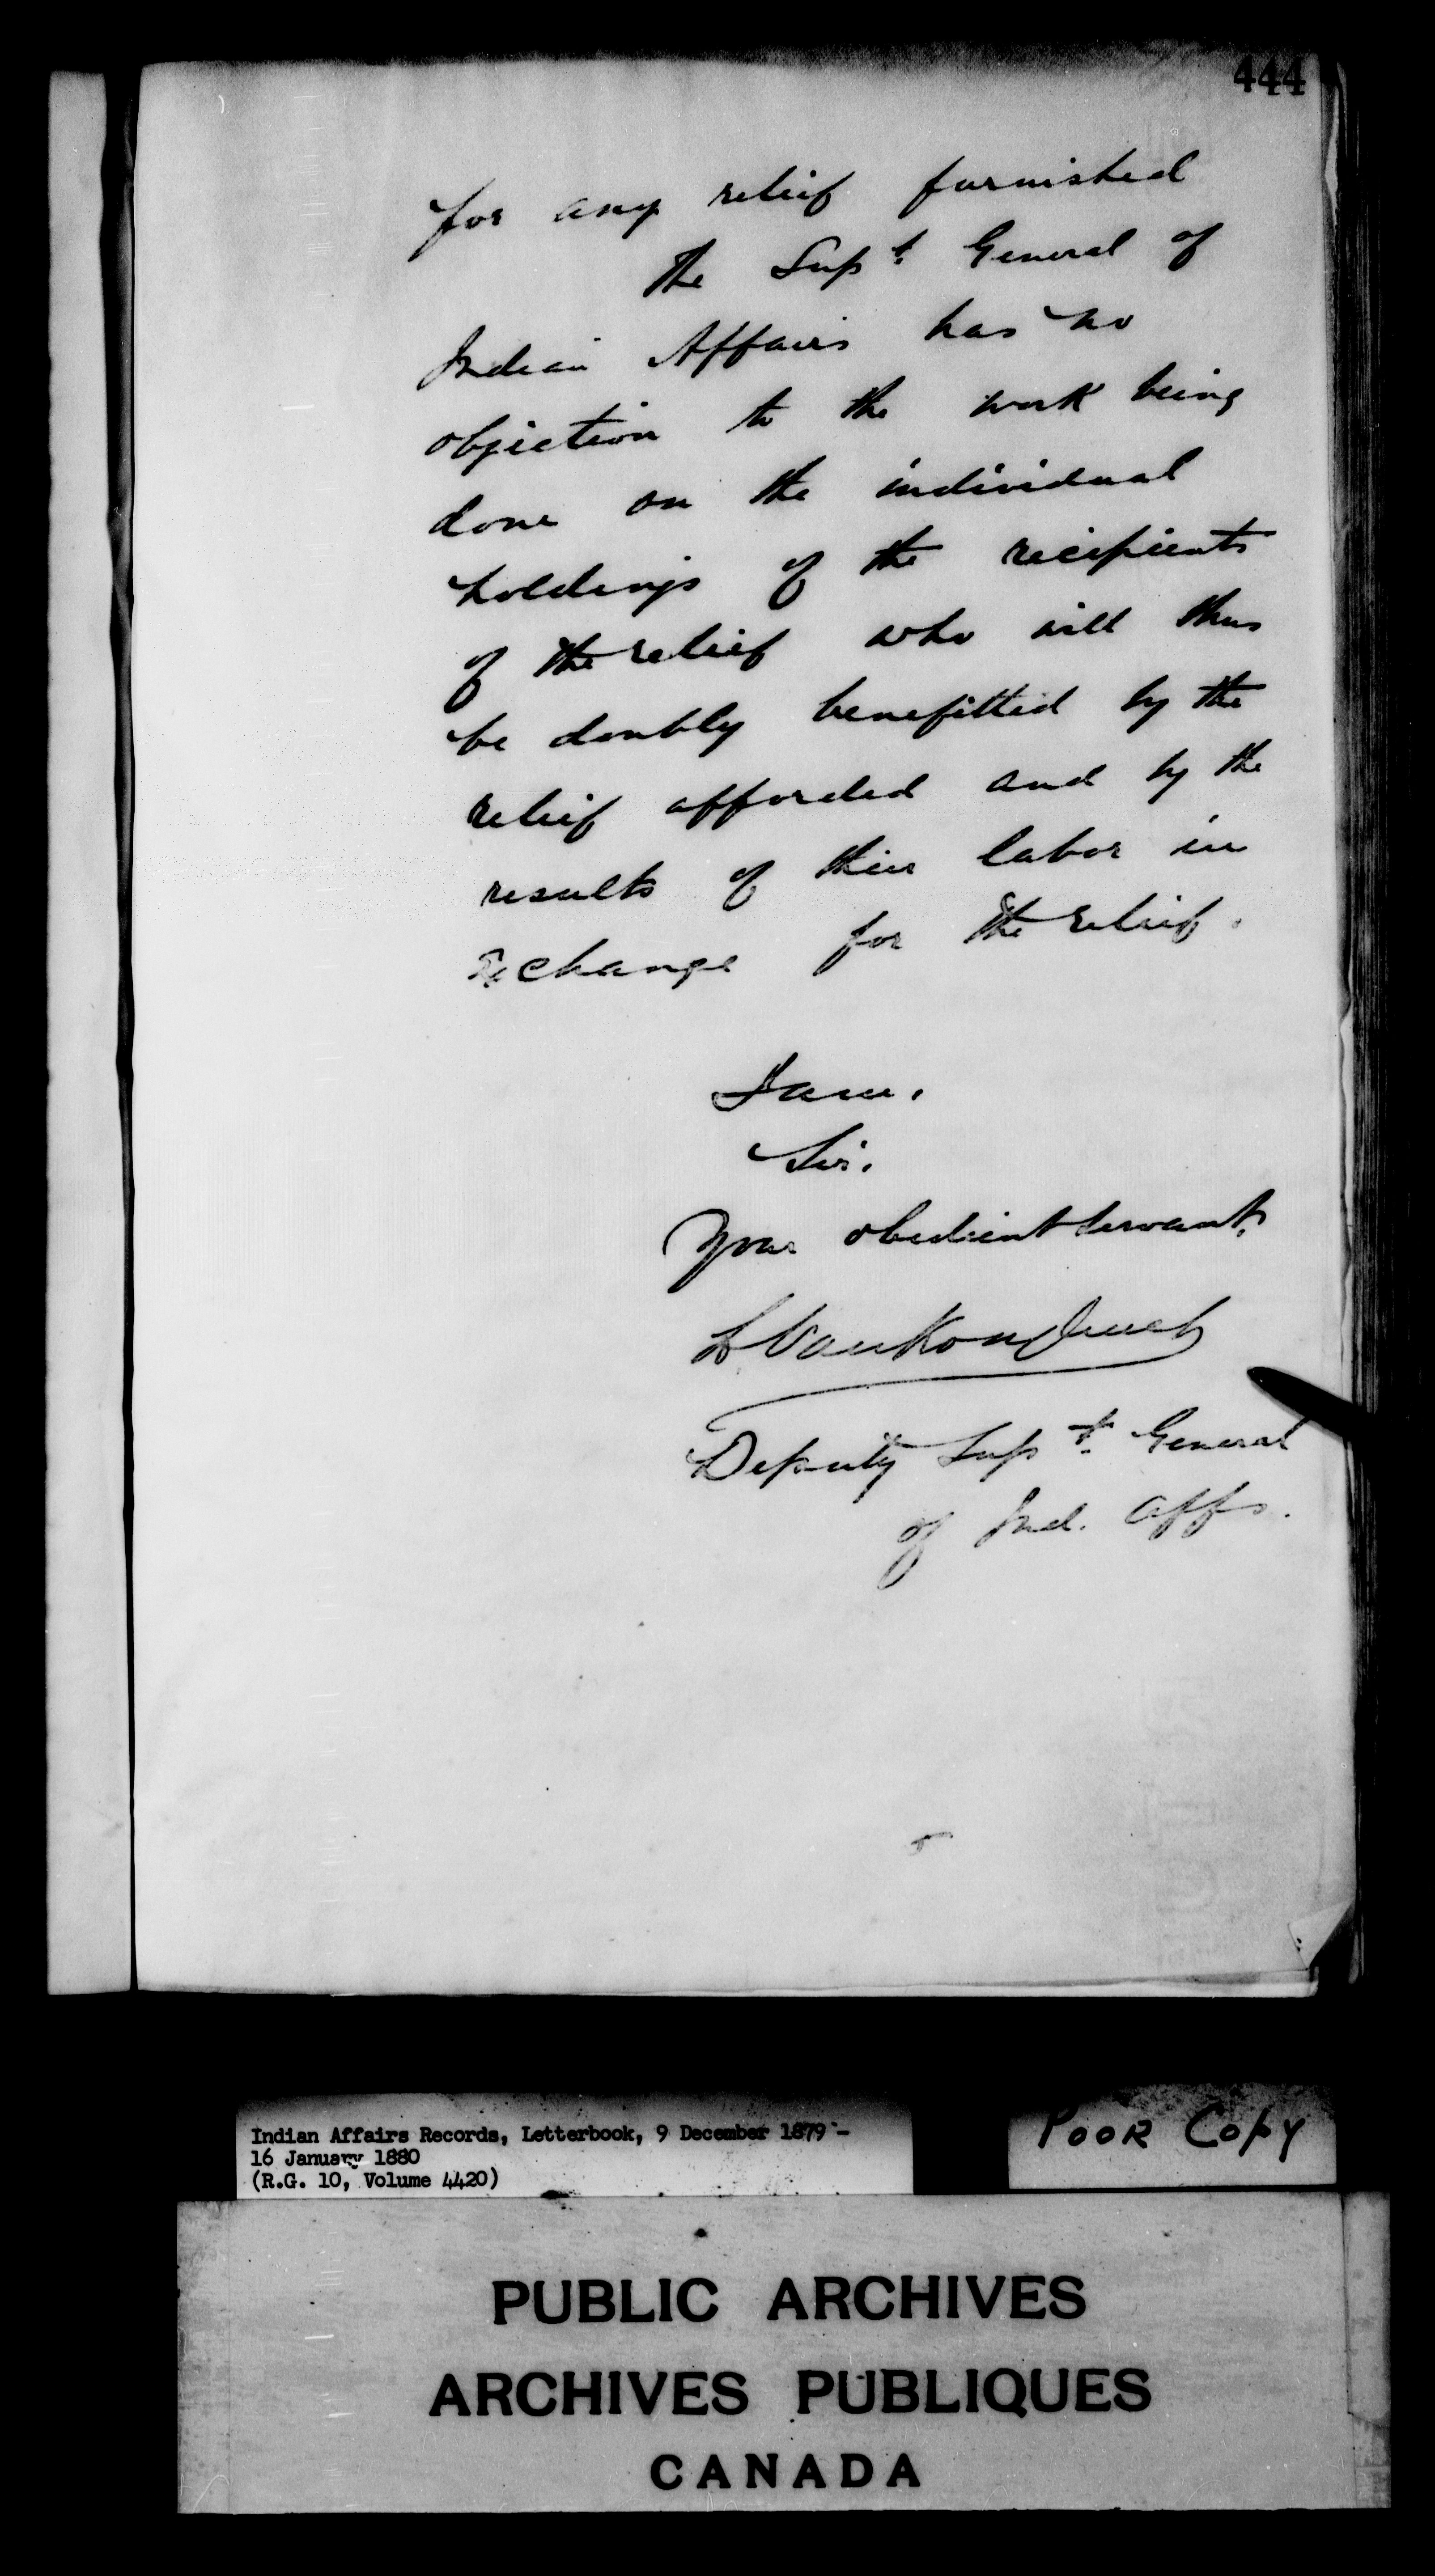 444
for any relief furnished
The Supt. General of
Indian Affairs has no
objection to the work being
done on the individual
holdings of the recipients
of the relief who will thus
be doubly benefitted by the
relief afforded and by the
results of their labor in
exchange for the relief.
I am,
Sir,
Your obedient servant,
L VanKoughnet
Deputy Supt. General
of Ind. Affs.
Indian Affairs Records, Letterbook, 9 December 1879 -
16 January 1880
(R.G. 10, Volume 4420)
POOR COPY
PUBLIC ARCHIVES
ARCHIVES PUBLIQUES
CANADA